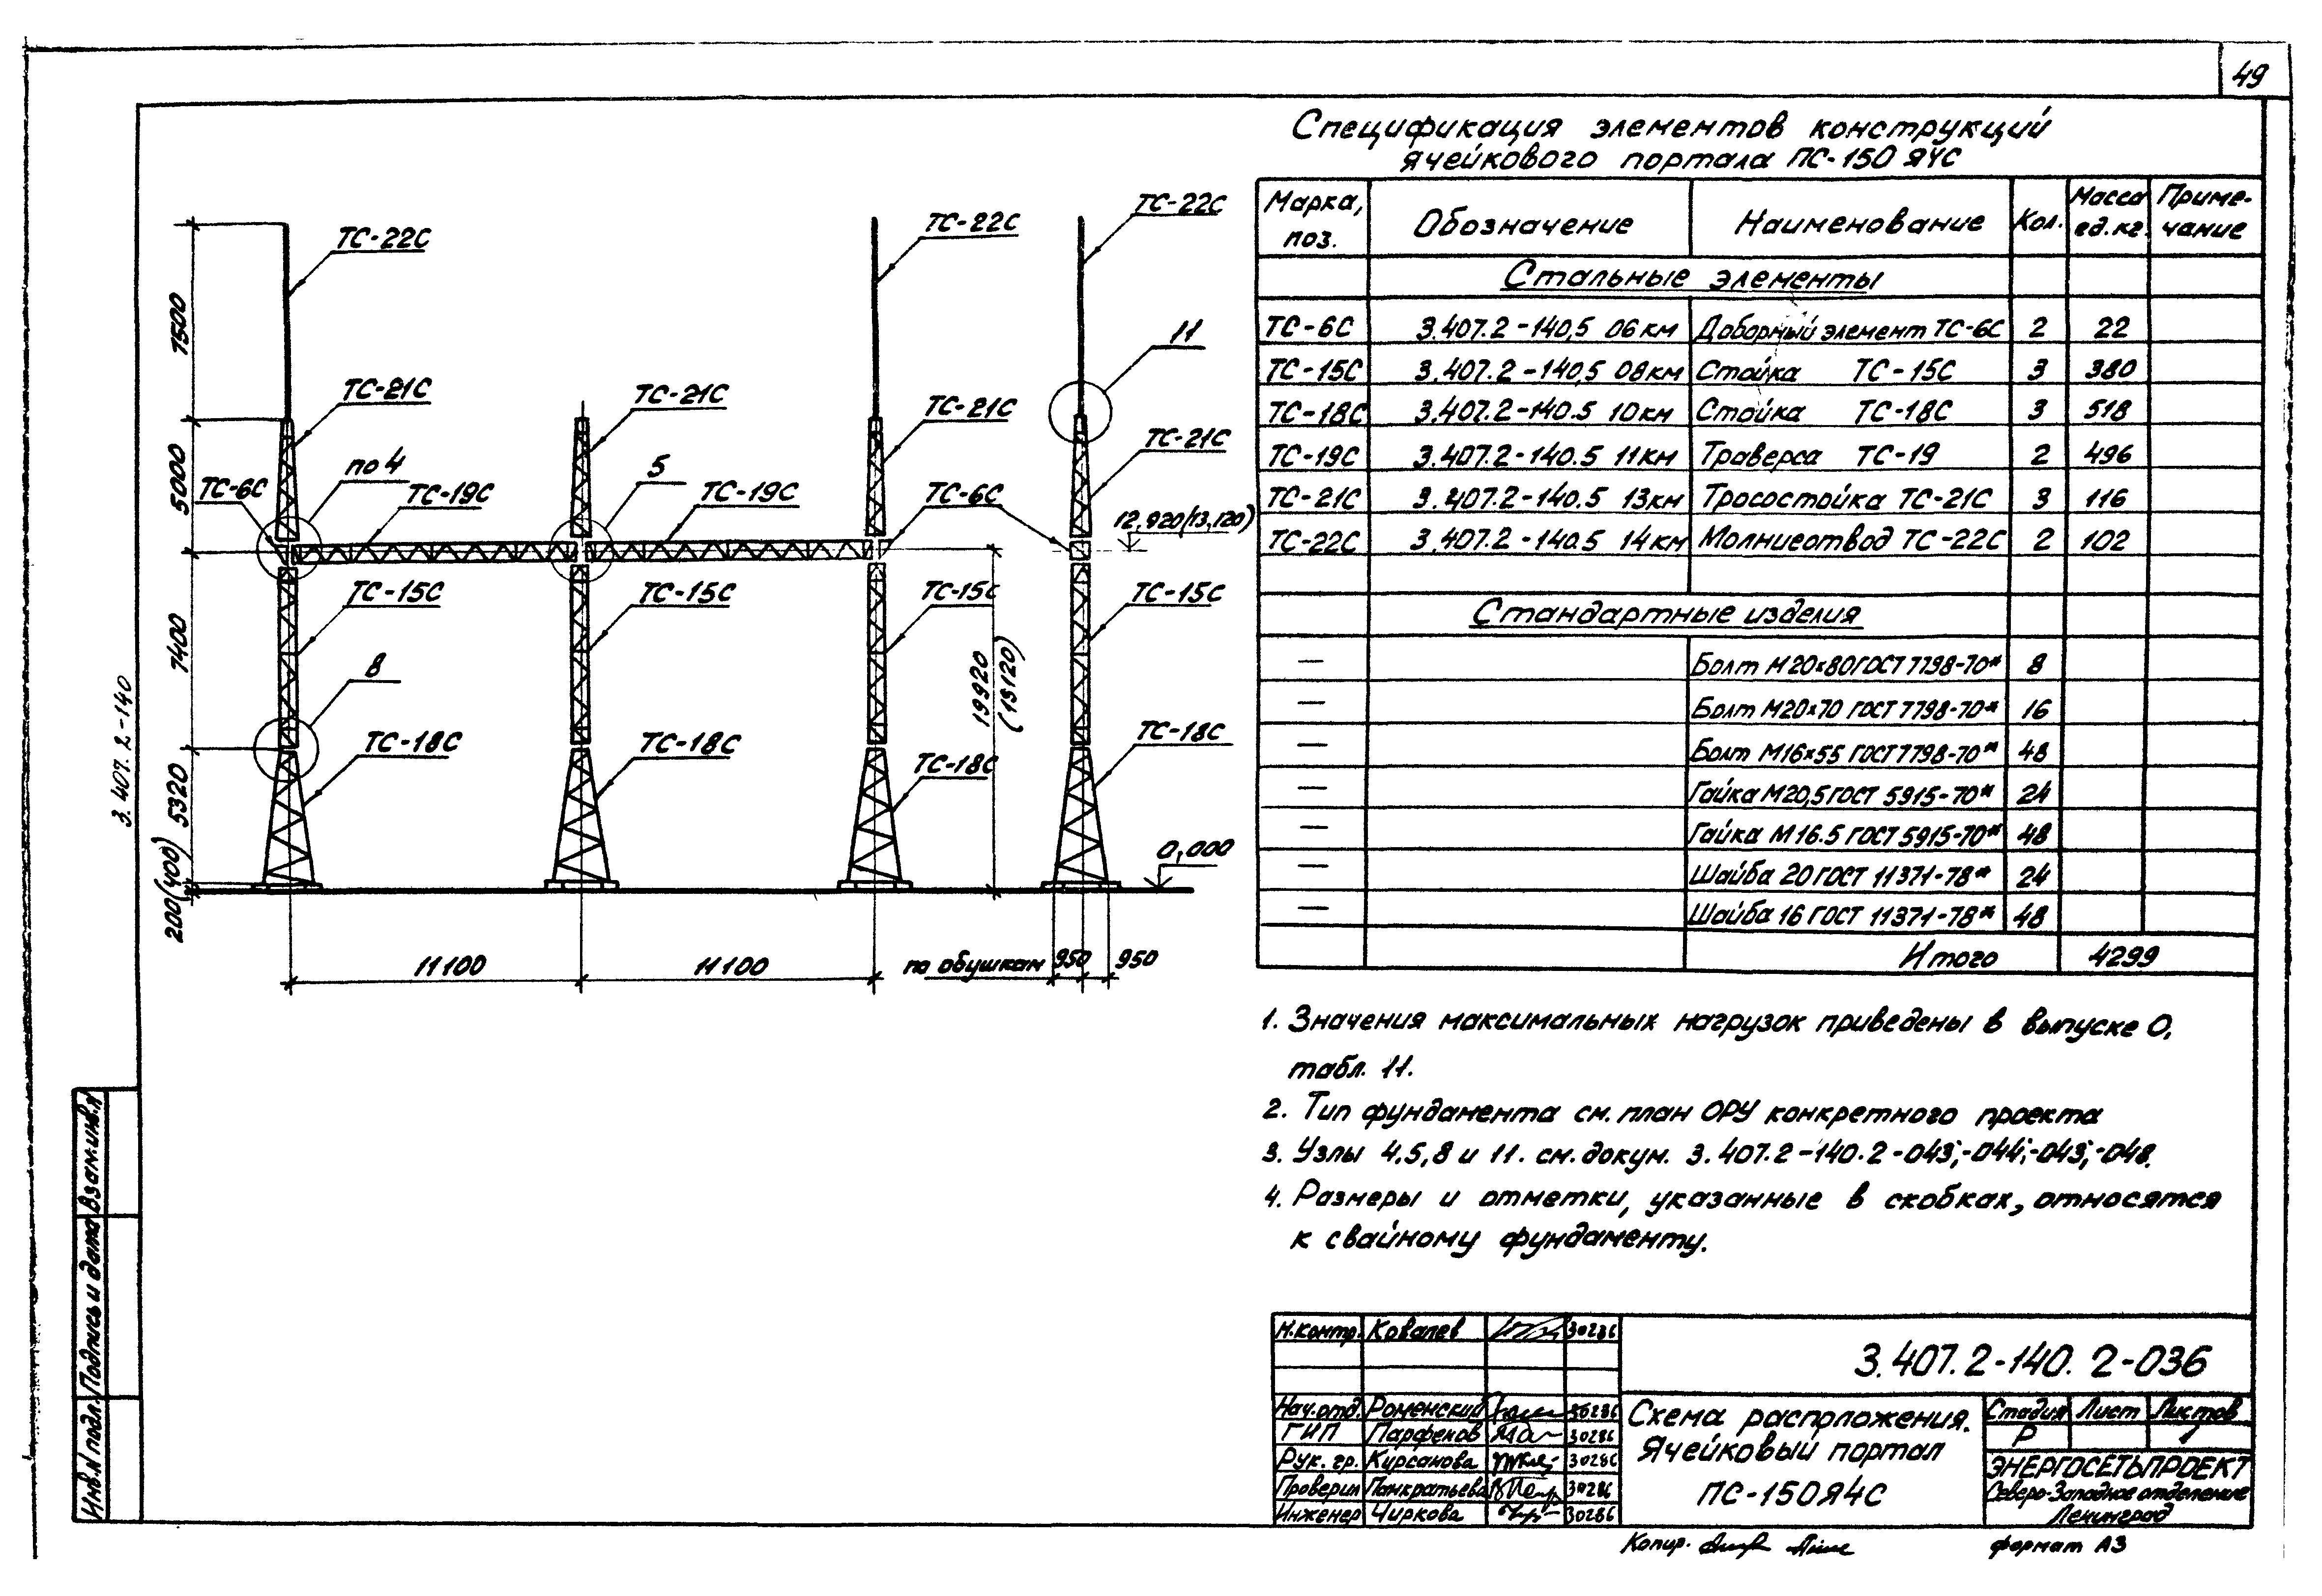 49
Спецификация элементов конструкций
ячейкового портала ПС-150 Я4С
Марка, поз. Обозначение Наименование Кол. Масса ед.кг. Приме-чание
Стальные элементы
ТС-6С 3.407.2-140,5 06 км Доборный элемент ТС-6С 2 22
ТС-15С 3.407.2-140,5 08км Стойка ТС-15С 3 380
ТС-18С 3.407.2-140.5 10км Стойка ТС-18С 3 518
ТС-19С 3.407.2-140.5 11км Траверса ТС-19 2 496
ТС-21С 3.407.2-140.5 13км Тросостойка ТС-21С 3 116
ТС-22С 3.407.2-140.5 14км Молниеотвод ТС-22С 2 102
Стандартные изделия
— Болт М20×80 ГОСТ 7798-70* 8
— Болт М20×70 ГОСТ 7798-70* 16
— Болт М16×55 ГОСТ 7798-70* 48
— Гайка М20,5 ГОСТ 5915-70* 24
— Гайка М16.5 ГОСТ 5915-70* 48
— Шайба 20 ГОСТ 11371-78* 24
— Шайба 16 ГОСТ 11371-78* 48
Итого 4299
ТС-22С
ТС-22С
ТС-22С
7500
11
ТС-21С
ТС-21С
ТС-21С
ТС-21С
5000
по 4
5
ТС-6С
ТС-19С
ТС-19С
ТС-6С
12,920(13,120)
ТС-15С
ТС-15С
ТС-15С
ТС-15С
7400
8
12920
(13120)
ТС-18С
ТС-18С
ТС-18С
ТС-18С
5320
200(400)
0,000
11100
11100
по обушкам 950 950
3.407.2-140
1. Значения максимальных нагрузок приведены в выпуске 0,
табл. 11.
2. Тип фундамента см. план ОРУ конкретного проекта
3. Узлы 4,5,8 и 11. см. докум. 3.407.2-140.2-043;-044;-043;-048.
4. Размеры и отметки, указанные в скобках, относятся
к свайному фундаменту.
Взам.инв.N
Подпись и дата
Инв.N подл.
Н.контр. Ковалев 30286
Нач.отд. Роменский 30286
ГИП Парфенов 30286
Рук. гр. Курсанова 30286
Проверил Панкратьева 30286
Инженер Чиркова 30286
3.407.2-140. 2-036
Схема расположения.
Ячейковый портал
ПС-150Я4С
Стадия Лист Листов
Р 1
ЭНЕРГОСЕТЬПРОЕКТ
Северо-Западное отделение
Ленинград
Копир.
формат А3